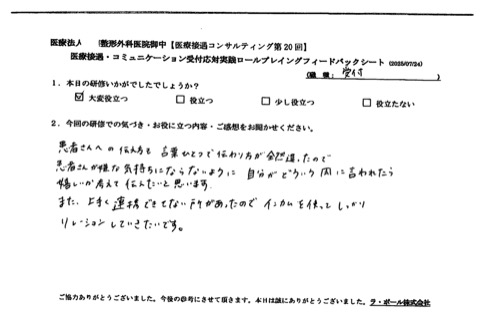 医療法人 整形外科医院御中【医療接遇コンサルティング第20回】
医療接遇・コミュニケーション受付応対実践ロールプレイングフィードバックシート (2025/07/24)
(職種: 受付)
1. 本日の研修いかがでしたでしょうか?
☑ 大変役立つ □ 役立つ □ 少し役立つ □ 役立たない
2. 今回の研修での気づき・お役に立つ内容・ご感想をお聞かせください。
患者さんへの伝え方も言葉ひとつで伝わり方が全然違ったので
患者さんが嫌な気持ちにならないように 自分がどういう風に言われたら
嬉しいか考えて伝えたいと思います。
また、上手く連携できてない所があったのでインカムを使ってしっかり
リレーションしていきたいです。
ご協力ありがとうございました。今後の参考にさせて頂きます。本日は誠にありがとうございました。ラ・ポール株式会社